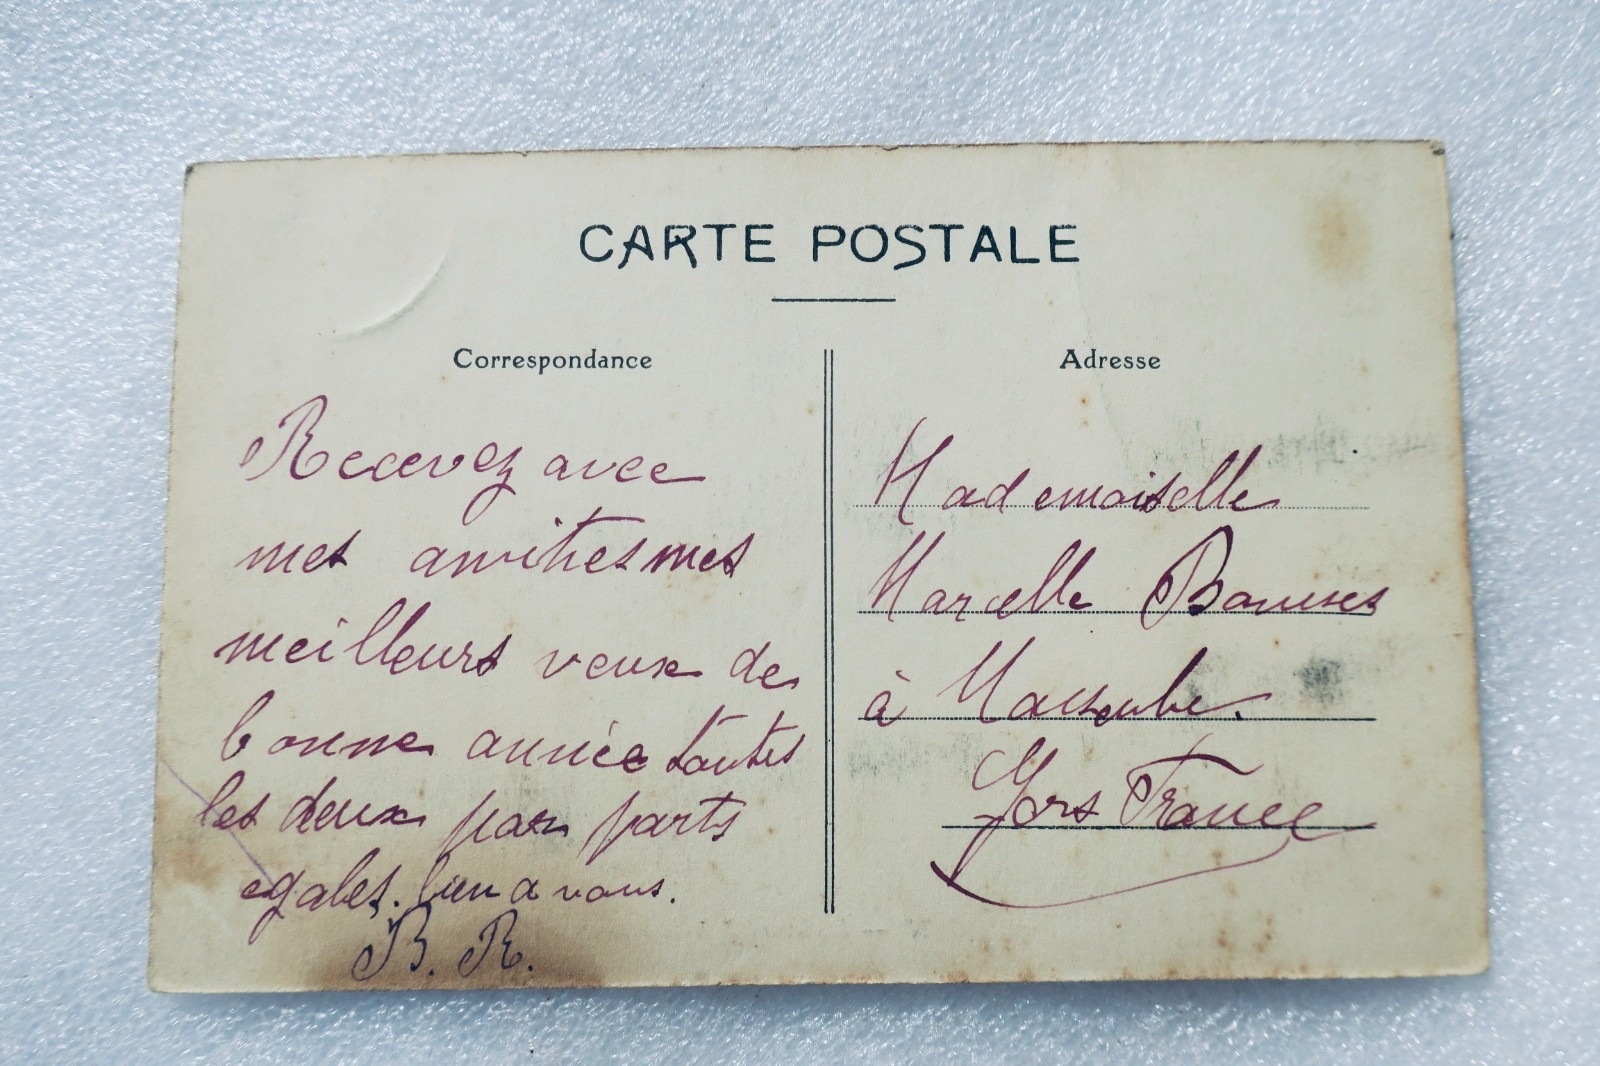 CARTE POSTALE
Correspondance
Recevez avec
mes amities mes
meilleurs veux de
bonne année toutes
les deux par parts
egales. bien a vous.
B. R.
Adresse
Mademoiselle
Marcelle
à Masseube.
Gers France